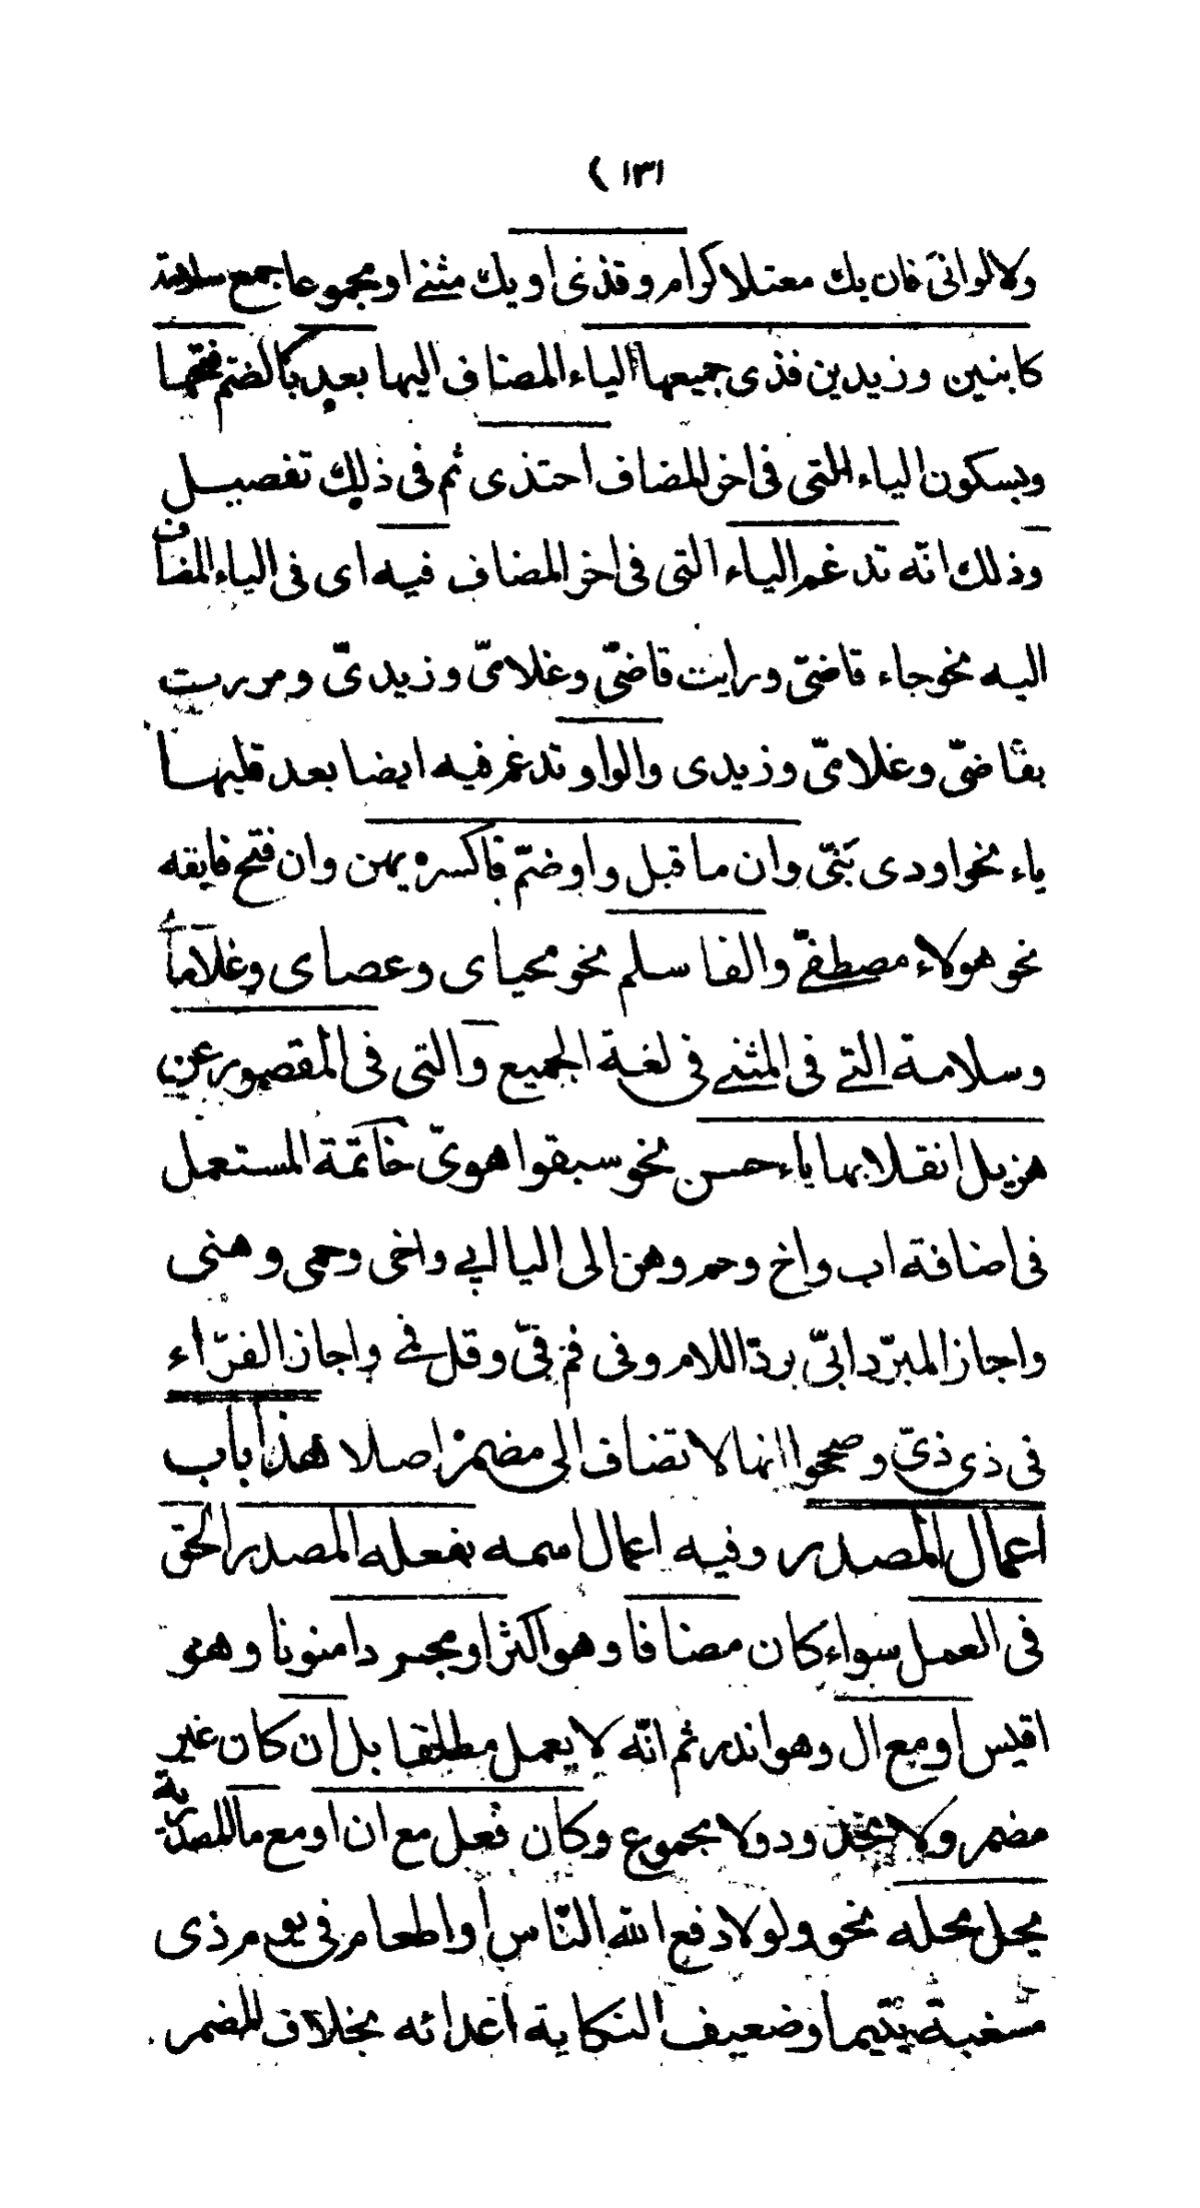 ( ١٣١
ولا لوانى فان يك معتلا كرام و قذى او يك مثنى او مجموعا جمع سلامة
كابنين وزيدين فذى جميعها الياء المضاف اليها بعد بالضم فتحها
وبسكون الياء التى فى اخر المضاف احتذى ثم فى ذلك تفصيل
وذلك انّه تدغم الياء التى فى اخر المضاف فيه اى فى الياء المضاف
اليه نحو جاء قاضىّ ورايت قاضىّ وغلامىّ وزيدىّ ومررت
بقاضىّ وغلامىّ وزيدى والواو تدغم فيه ايضا بعد قلبها
ياء نحو اودى بَنىّ وان ما قبل واو ضمّ فاكسره يهن وان فتح فابقه
نحو هولاء مصطفىّ والفا سلم نحو محياى وعصاى وغلاماى
وسلامة التى فى المثنى فى لغة الجميع والتى فى المقصور عن
هزيل انقلابها ياء حسن نحو سبقوا هوىّ خاتمة المستعمل
فى اضافة اب واخ وحم وهن الى اليا ابى واخى وحمى وهنى
واجاز المبرّد ابىّ بردّ اللام وفى فم فىّ وقل فمى واجاز الفرّاء
فى ذى ذىّ وصححوا انها لا تضاف الى مضمر اصلا هذا باب
اعمال المصدر وفيه اعمال اسمه بفعله المصدر الحق
فى العمل سواء كان مضافا وهو اكثر او مجردا منونا وهو
اقيس او مع ال وهو اندر ثم انّه لا يعمل مطلقا بل ان كان غير
مضمر ولا محدود ولا مجموع وكان فعل مع ان او مع ما المصدرية
يحل محله نحو ولولا دفع الله النّاس او اطعام فى يوم ذى
مسغبة يتيما او ضعيف النكاية اعدائه بخلاف المضمر